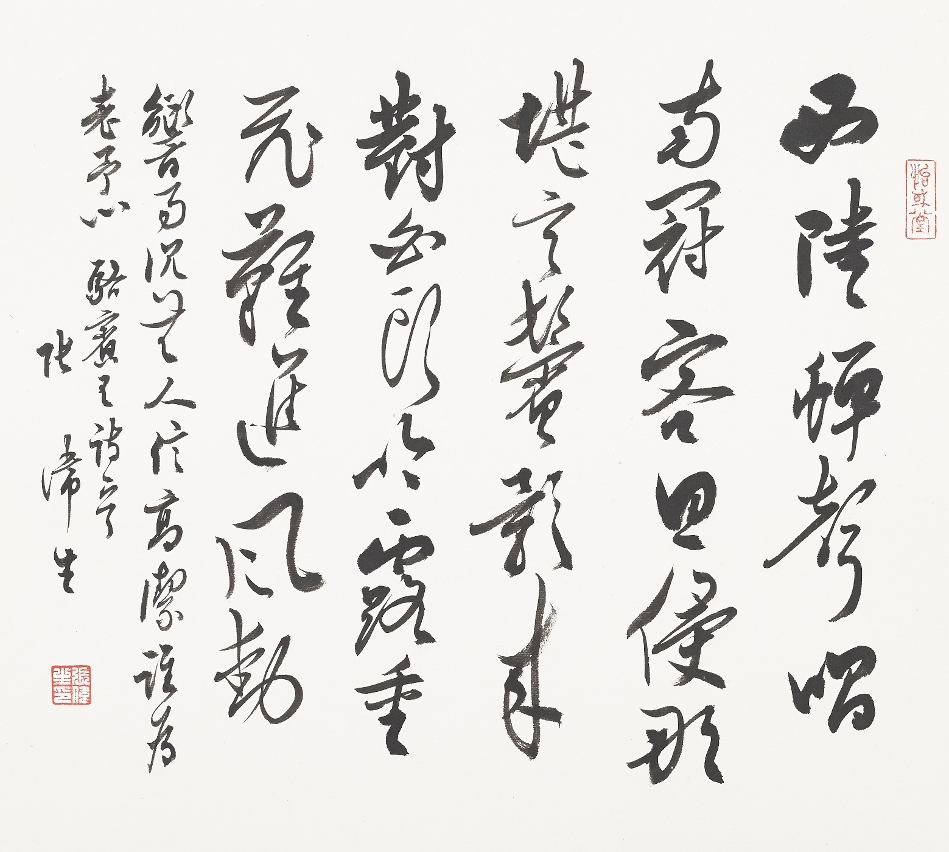 西陸蟬聲唱
南冠客思侵那
堪玄鬢影來
對白頭吟露重
飛難進風
響易沉無人信高潔誰為
表予心 駱賓王詩
張生